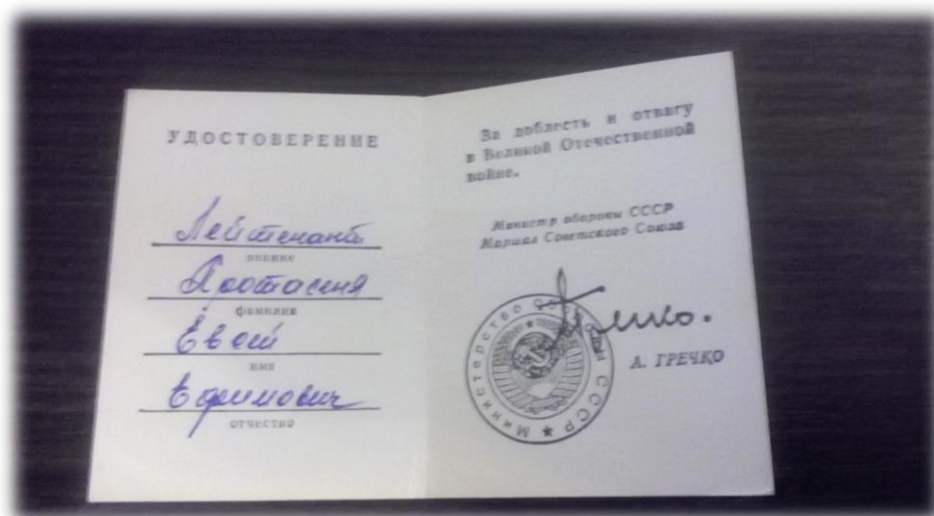 УДОСТОВЕРЕНИЕ
Лейтенант
звание
Протасеня
фамилия
имя
Ефимович
отчество
За доблесть и отвагу
в Великой Отечественной
войне.
Министр обороны СССР
Маршал Советского Союза
Министерство обороны СССР
А. ГРЕЧКО